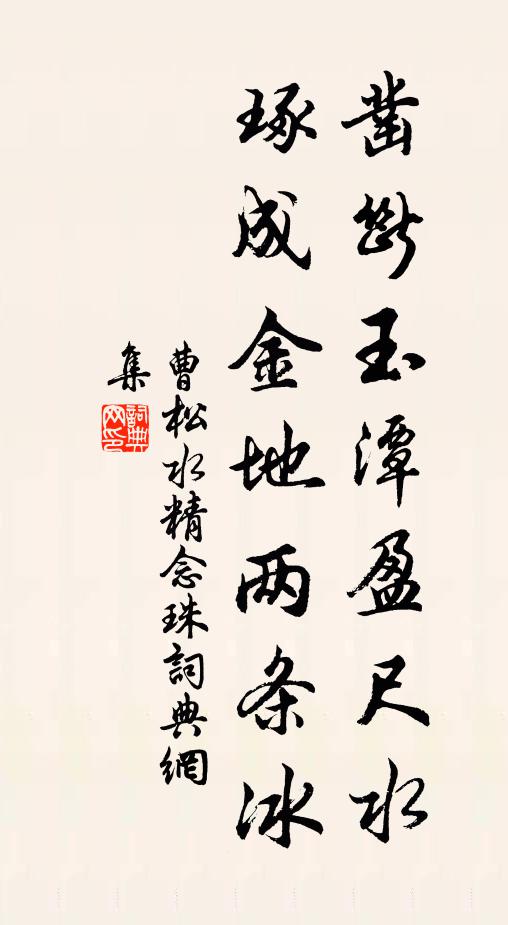 凿断玉潭盈尺水
琢成金地两条冰
曹松水精念珠詞典網
集
詞典
网印